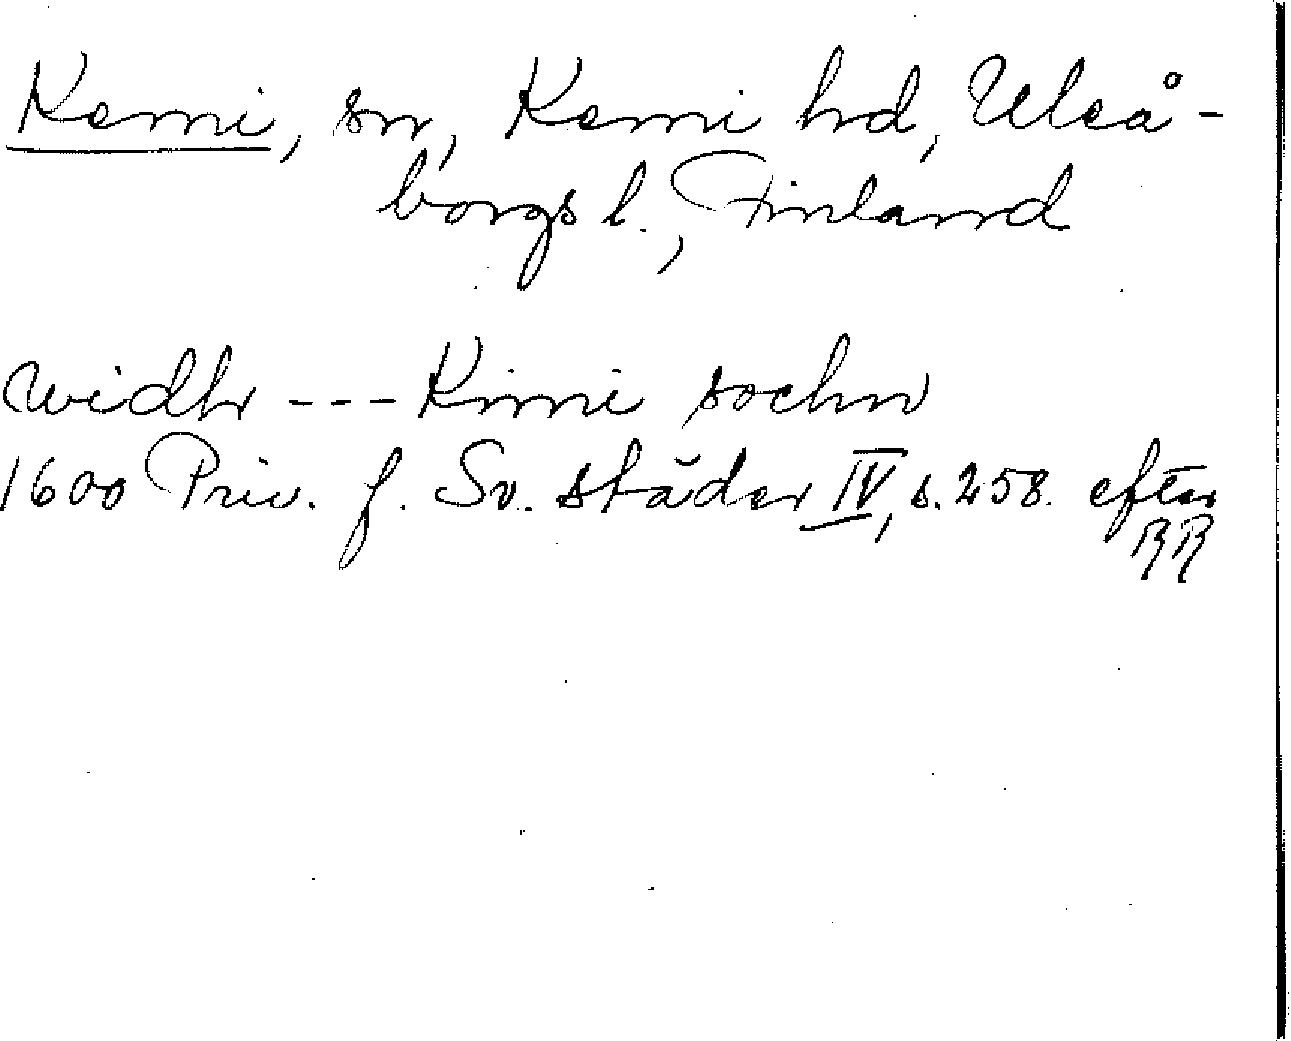 Kemi, sn, Kemi hd, Uleå-
borgs l., Finland
widhr --- Kimi sochn
1600 Priv. f. Sv. städer IV, s. 258. efter
RR